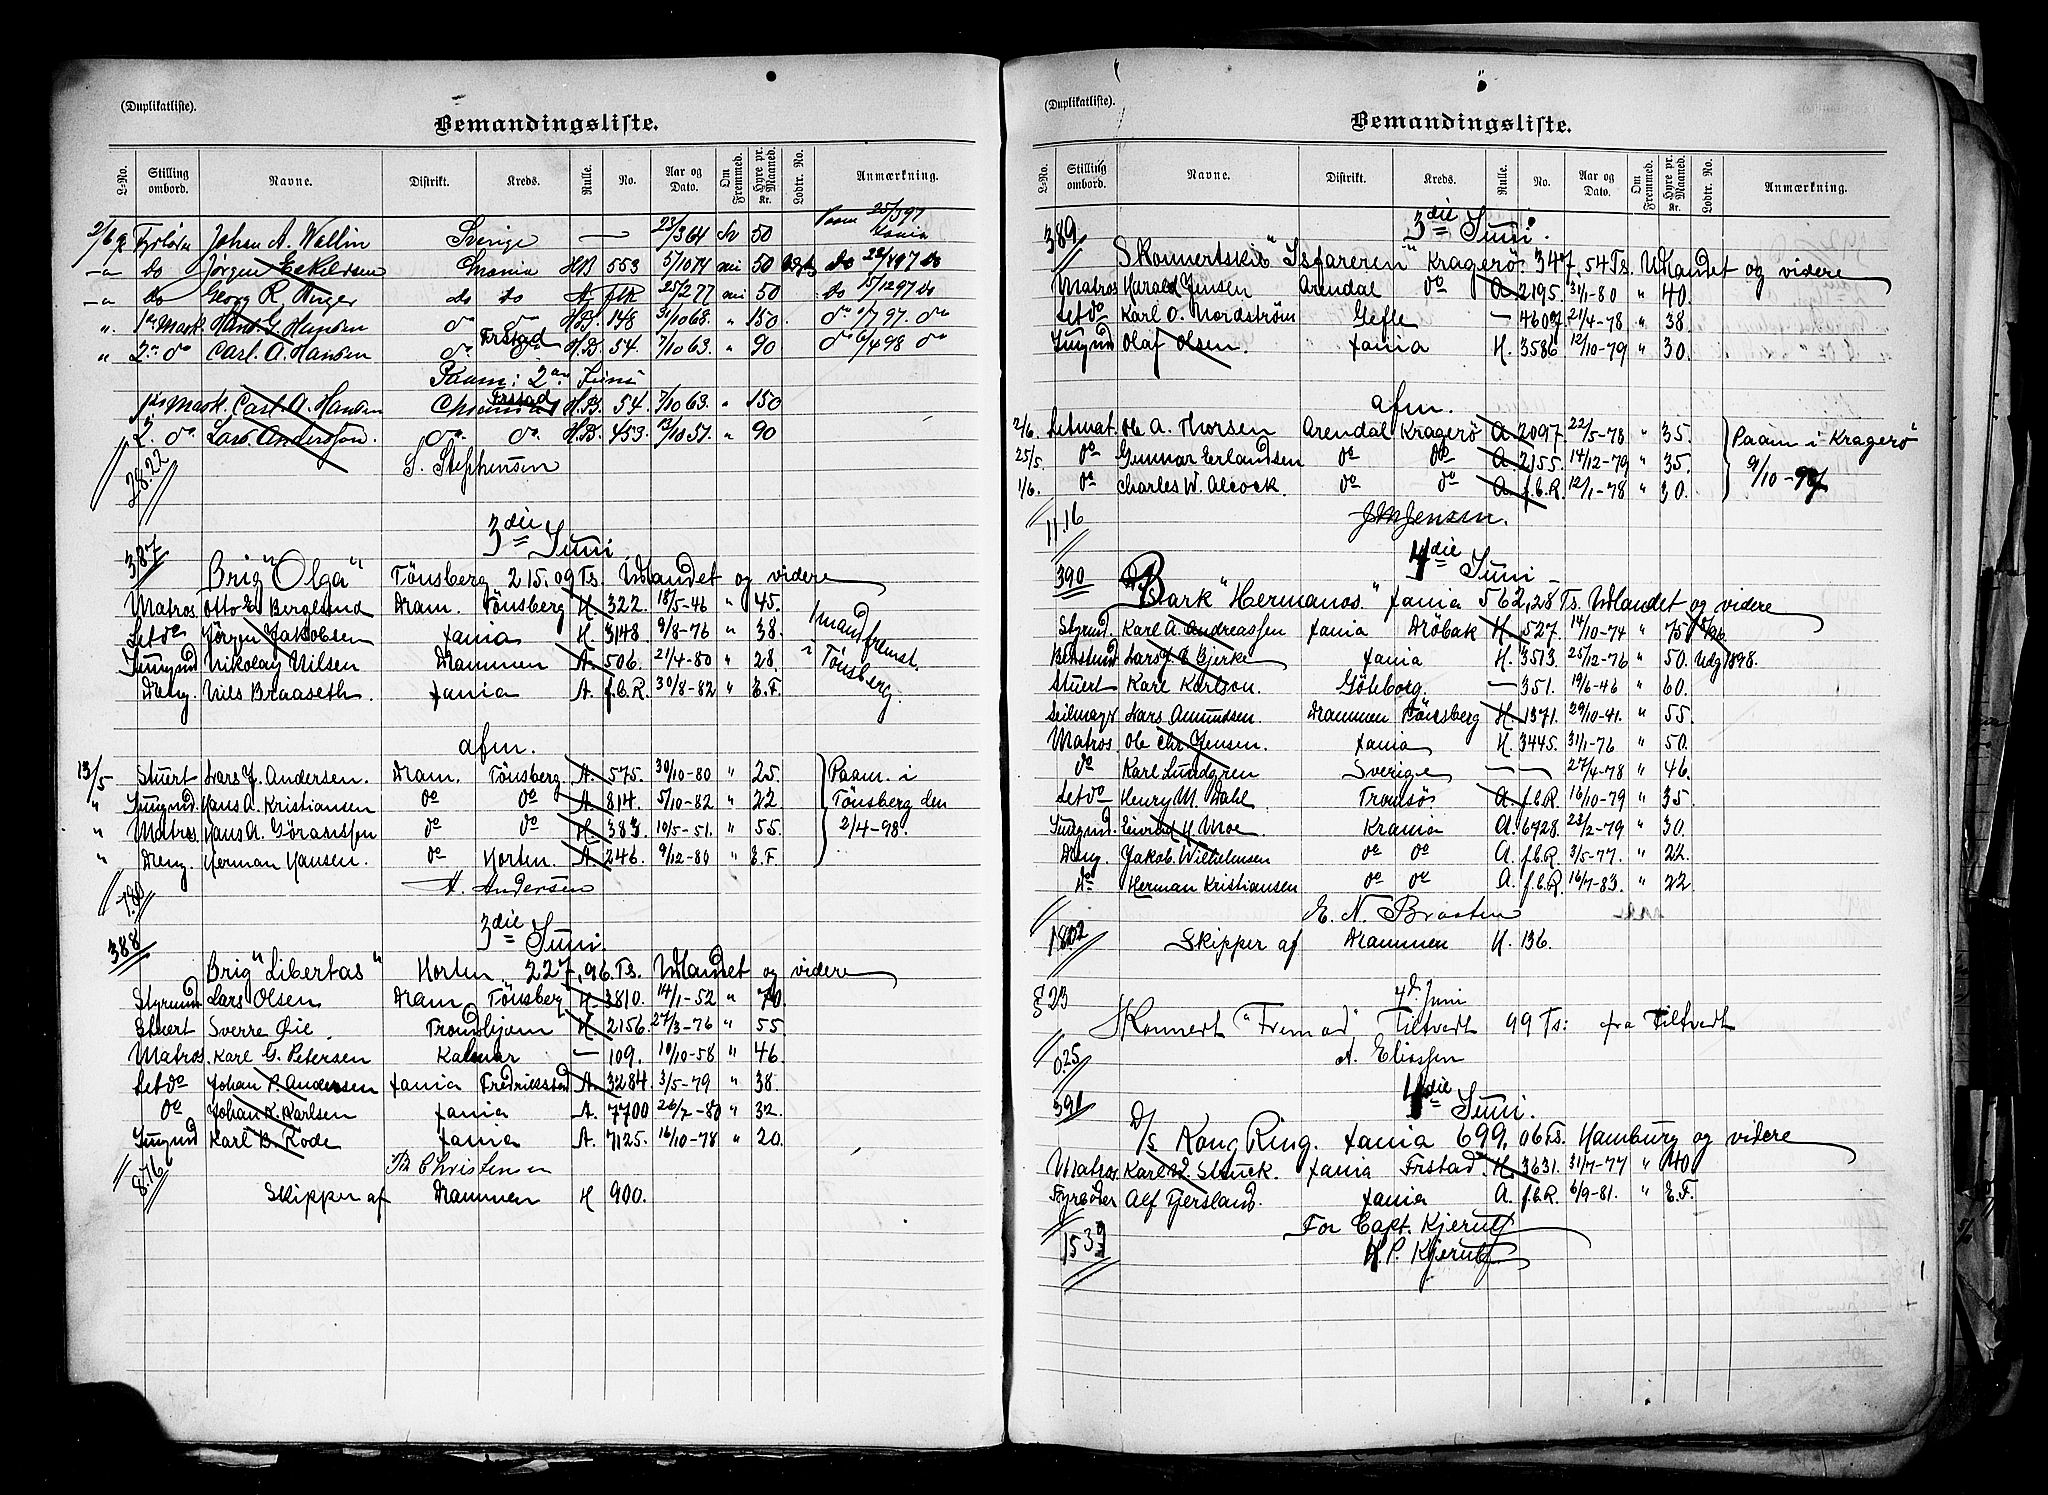 (Duplikatliste).
Bemandingsliste.
L-No. Stilling ombord. Navne. Distrikt. Kreds. Rulle. No. Aar og Dato. Om Fremmed. Hyre pr. Maaned. Kr. Lodtr. No. Anmærkning.
Johan A. Wallin Sverige — 23/3 64 50 Paam 25/5 97
do Jørgen Eskildsen HB 553 5/10 74 50 do
do Georg R. Unger do do A. 25/2 77 50 do 15/12 97 do
" 1ste Mask. Hans G. Hansen do do H.B. 148 31/10 68 " 150. do 1/7 97. do
" 2. do Carl. A. Hansen do Frstad H.B. 54. 7/10 63. " 90 do 6/4 98 do
Paam: 2en Juni
1ste Mask. Carl. A. Hansen Frstad H.B. 54. 7/10 63. " 150
2. do Lars Andersson. do do H.B. 453. 12/10 57. " 90
38.22 S. Stephensen
3die Juni
387
Brig "Olga" Tönsberg 215.09 Ts. Udlandet og videre
Matros Otto E. Berglund Dram. Tönsberg H. 322. 18/5-46 " 45. 1 mand fremst.
Let do Jörgen Jakobsen xania H. 3148. 9/8-76 " 38. i Tönsberg.
Jungmd Nikolay Nilsen Drammen A. 506. 21/4-80 " 28.
Dreng Nils Braaseth xania A. f.b.R. 30/8-82 " E.F.
afm.
13/5 Stuert Lars J. Andersen. Dram. Tönsberg. A. 575. 30/10-80 " 25. Paam. i
" Jungmd. Hans A. Kristiansen do do A. 814. 5/10-82 " 22 Tönsberg den
" Matros. Hans A. Göranssen do do H. 383. 10/5-51. " 55. 2/4-98.
" Dreng. Herman Hansen. do Horten. A. 246. 9/12-80 " E.F.
7.80 A. Andersen
3die Juni.
388
Brig "Libertas" Horten 227,96 Ts. Udlandet og videre
Styrmd Lars Olsen Dram Tönsberg H. 3810. 14/1-52 " 70.
Stuert Sverre Öie Trondhjem H. 2156. 27/3-76 " 55
Matros. Karl G. Petersen Kalmar — 109. 10/10-58 " 46.
Let do Johan P. Andersen xania Fredrikstad A. 3284. 3/5-79 " 38.
do Johan K. Karlsen xania A. 7700 " 32.
Jungmd Karl B. Rode xania A. 7125. 16/10-78 " 20.
8.76 Christensen
Skipper af Drammen H 900.
(Duplikatliste).
Bemandingsliste.
L-No. Stilling ombord. Navne. Distrikt. Kreds. Rulle. No. Aar og Dato. Om Fremmed. Hyre pr. Maaned. Kr. Lodtr. No. Anmærkning.
389 3die Juni.
Skonnertskib "Isfareren" Kragerö 347,54 Ts. Udlandet og videre
Matros Harald Jensen Arendal do A. 2195. 31/1-80 " 40.
Let do Karl O. Nordström Gefle — 4607. 21/4-78 " 38.
Jungmd Olaf Olsen. xania H. 3586 12/10-79 " 30.
afm.
2/6. Letmat. Ole A. Thorsen Arendal Kragerö A. 2097. 22/5-78 " 35. Paam i Kragerö
25/5. do Gunnar Erlandsen do do A. 2155. 14/12-79 " 35. 9/10-97
1/6. do Charles W. Alcock. do do A. f.b.R. 12/1-78 " 30.
11.16 Jensen.
4die Juni
390 Bark "Hermanos." xania 562,28 Ts. Udlandet og videre
Styrmd. Karl A. Andreassen xania Dröbak H. 527. 14/10-74 " 75
Bestmd Lars J. E. Gjerke xania H. 3513. 25/12-76 " 50. Udg 1898.
Stuert Karl Karlson. Göteborg. — 351. 19/6-46 " 60.
Seilmagr Lars Amundsen. Drammen Tönsberg H. 1371. 29/10-41. " 55.
Matros Ole Chr. Jensen. xania H. 3445. 31/1-76 " 50.
do Karl Lundgren Sverige — — 27/4-78 " 46.
Let do Henry M. Dahl Tromsö A. f.b.R. 16/10-79 " 35.
Jungmd. H. Moe. Krania A. 6928. 23/2-79 " 30.
Dreng. Jakob Wilhelmsen do do A. f.b.R. 3/5-77. " 22.
do Herman Kristiansen do do A. f.b.R. 16/7-83. " 22
E. N. Braaten
18.02 Skipper af Drammen H. 136.
§ 23 4d. Juni
Skonnert "Fremad" Tiltvedt 99 Ts: fra Tiltvedt
0.25 A. Eliassen
391 4die Juni.
D/s Kong Ring. xania 699,06 Ts. Hamburg og videre
Matros Karl Stuck. xania Frstad. H. 3631. 31/7-77 " 40.
Fyrböder Alf Fjersland. xania A. f.b.R. 6/9-81. " E.F.
For Capt. Kjerulf
15.39 H. P. Kjerulf